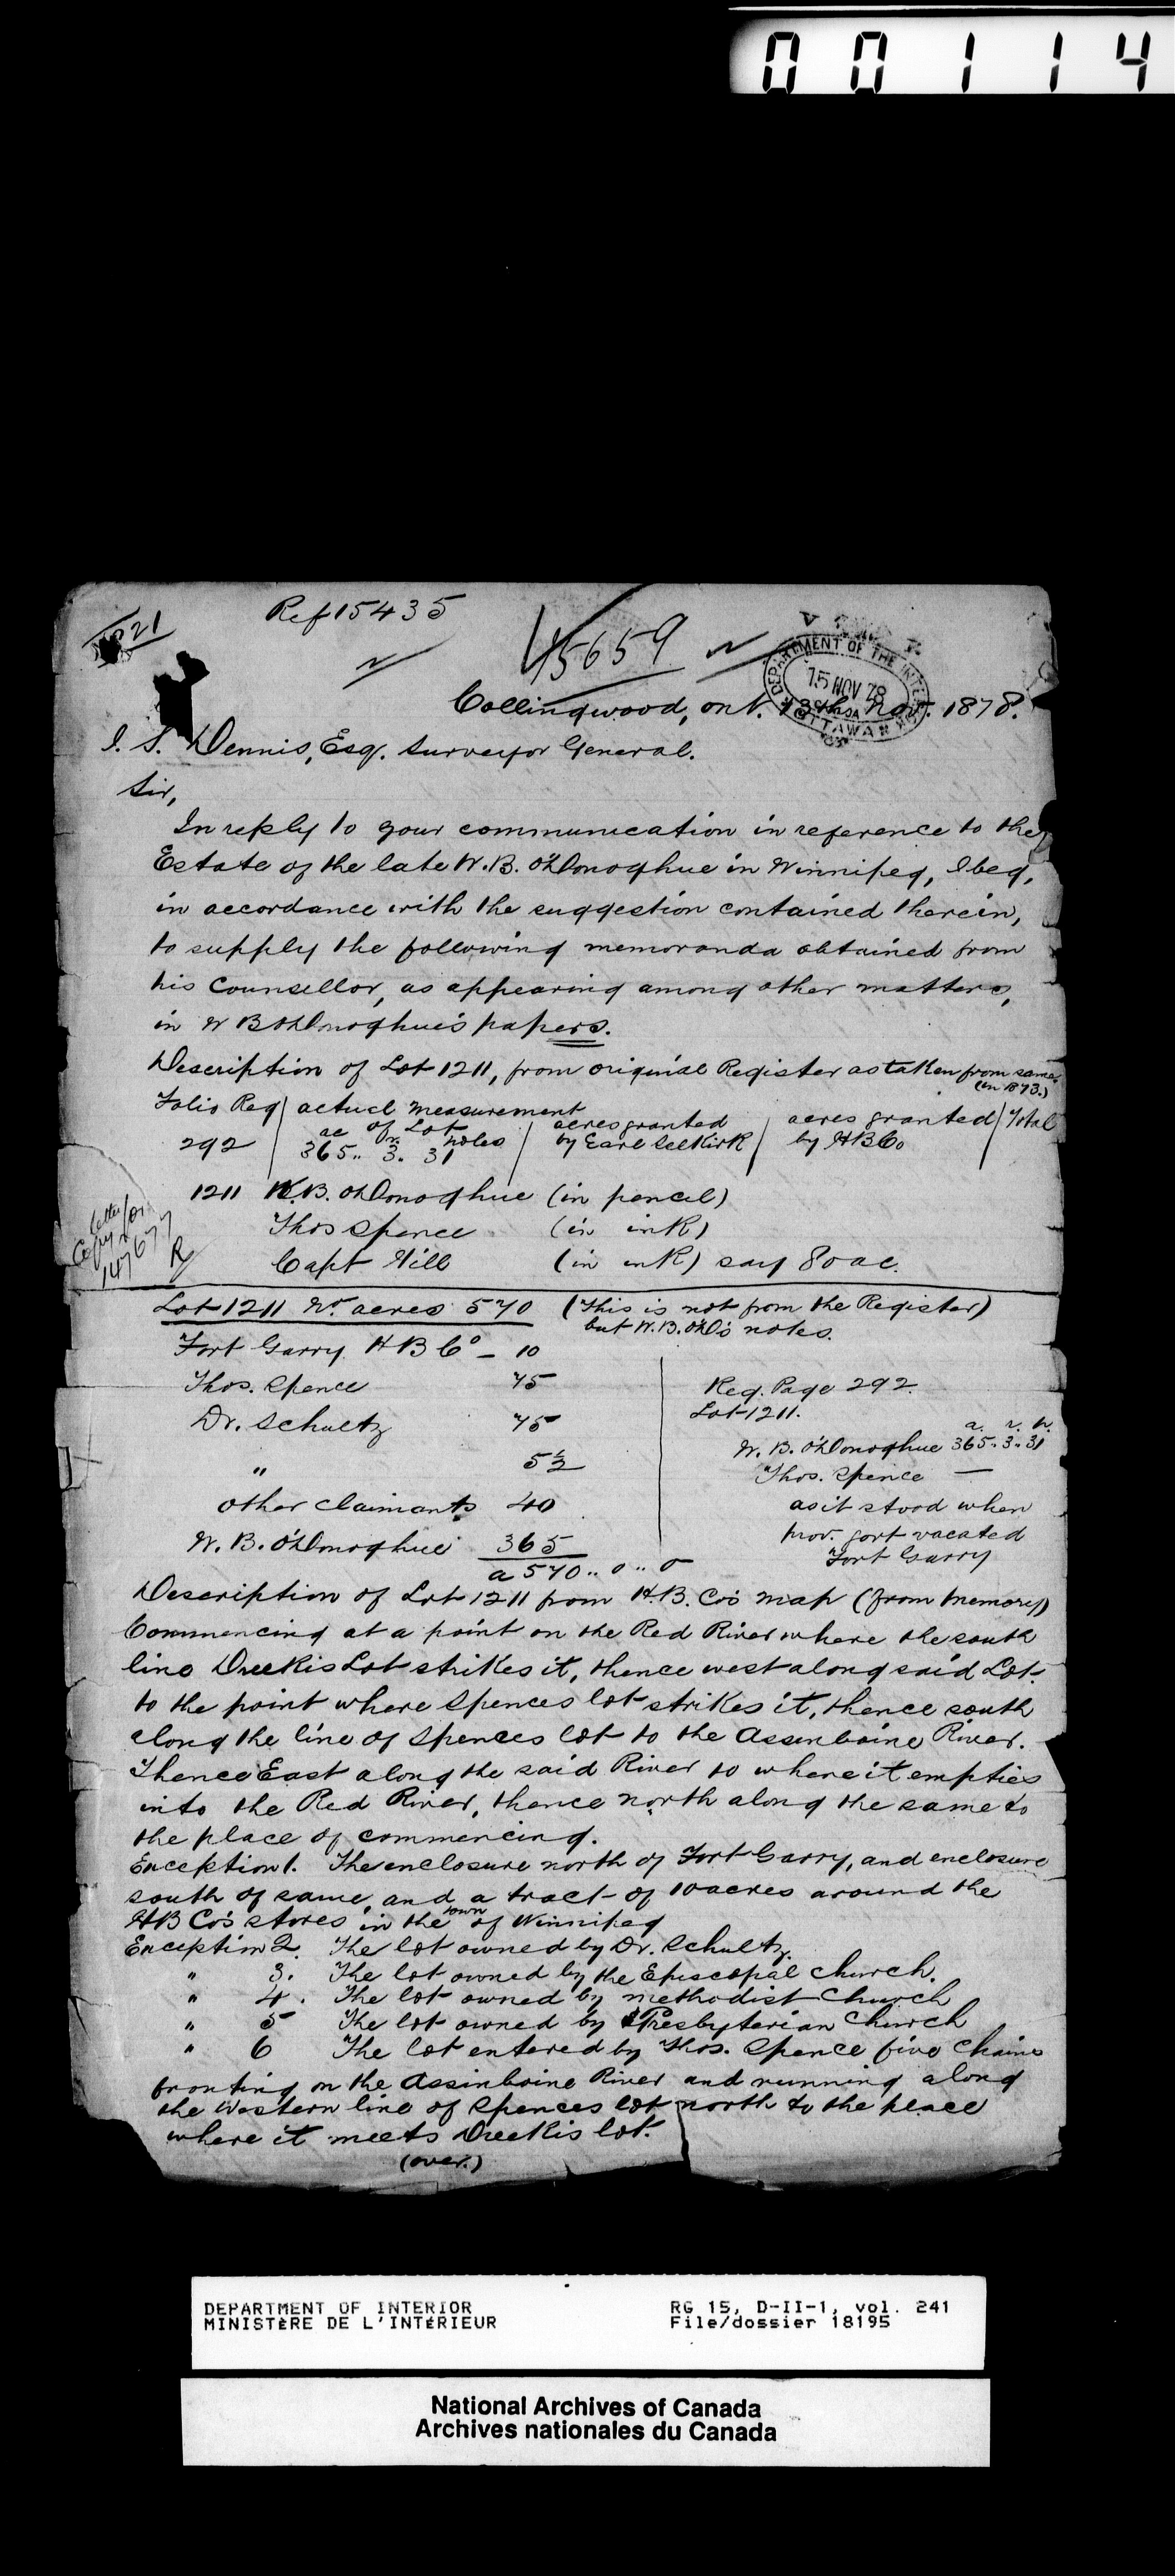 00114
Ref 15435
15659
DEPARTMENT OF THE INTERIOR
15 NOV 78
OTTAWA
Collingwood, Ont. 13th Nov. 1878.
J. S. Dennis, Esq. Surveyor General.
Sir,
In reply to your communication in reference to the
Estate of the late W. B. O'Donoghue in Winnipeg, I beg,
in accordance with the suggestion contained therein,
to supply the following memoranda obtained from
his Counsellor, as appearing among other matters,
in W B O'Donoghue's papers.
Description of Lot 1211, from original Register as taken from same
(in 1873.)
Folio Reg | actual measurement of Lot | acres granted by Earl Selkirk | acres granted by H B Co | Total
292 | ac 365.. r. 3. poles 31
1211 W. B. O'Donoghue (in pencil)
Thos Spence (in ink)
Capt Hill (in ink) say 80 ac.
Copy
14767
R
Lot 1211 acres 570 (This is not from the Register)
but W. B. O'D's notes.
Fort Garry H B Co – 10
Thos. Spence 75
Dr. Schultz 75
" 5½
Other Claimants 40
W. B. O'Donoghue 365
a 570 .. 0 .. 0
Reg. Page 292.
Lot 1211.
a. r. p.
W. B. O'Donoghue 365.. 3.. 31
Thos. Spence —
as it stood when
prov. govt vacated
Fort Garry
Description of Lot 1211 from H. B. Co's map (from memory)
Commencing at a point on the Red River where the south
line Dreekis Lot strikes it, thence west along said Lot
to the point where Spences lot strikes it, thence south
along the line of Spences lot to the Assinboine River.
Thence East along the said River to where it empties
into the Red River, thence north along the same to
the place of commencing.
Exception 1. The enclosure north of Fort Garry, and enclosure
south of same, and a tract of 10 acres around the
H B Co's stores in the town of Winnipeg
Exception 2. The lot owned by Dr. Schultz.
" 3. The lot owned by the Episcopal Church.
" 4. The lot owned by methodist Church
" 5 The lot owned by Presbyterian Church
" 6 The lot entered by Thos. Spence five chains
fronting on the Assinboine River and running along
the Western line of Spences lot north to the place
where it meets Dreekis lot.
(over.)
DEPARTMENT OF INTERIOR
MINISTÈRE DE L'INTÉRIEUR
RG 15, D-II-1, vol. 241
File/dossier 18195
National Archives of Canada
Archives nationales du Canada